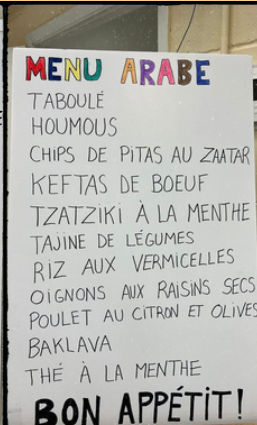 MENU ARABE
TABOULÉ
HOUMOUS
CHIPS DE PITAS AU ZAATAR
KEFTAS DE BOEUF
TZATZIKI À LA MENTHE
TAJINE DE LÉGUMES
RIZ AUX VERMICELLES
OIGNONS AUX RAISINS SECS
POULET AU CITRON ET OLIVES
BAKLAVA
THÉ À LA MENTHE
BON APPÉTIT!